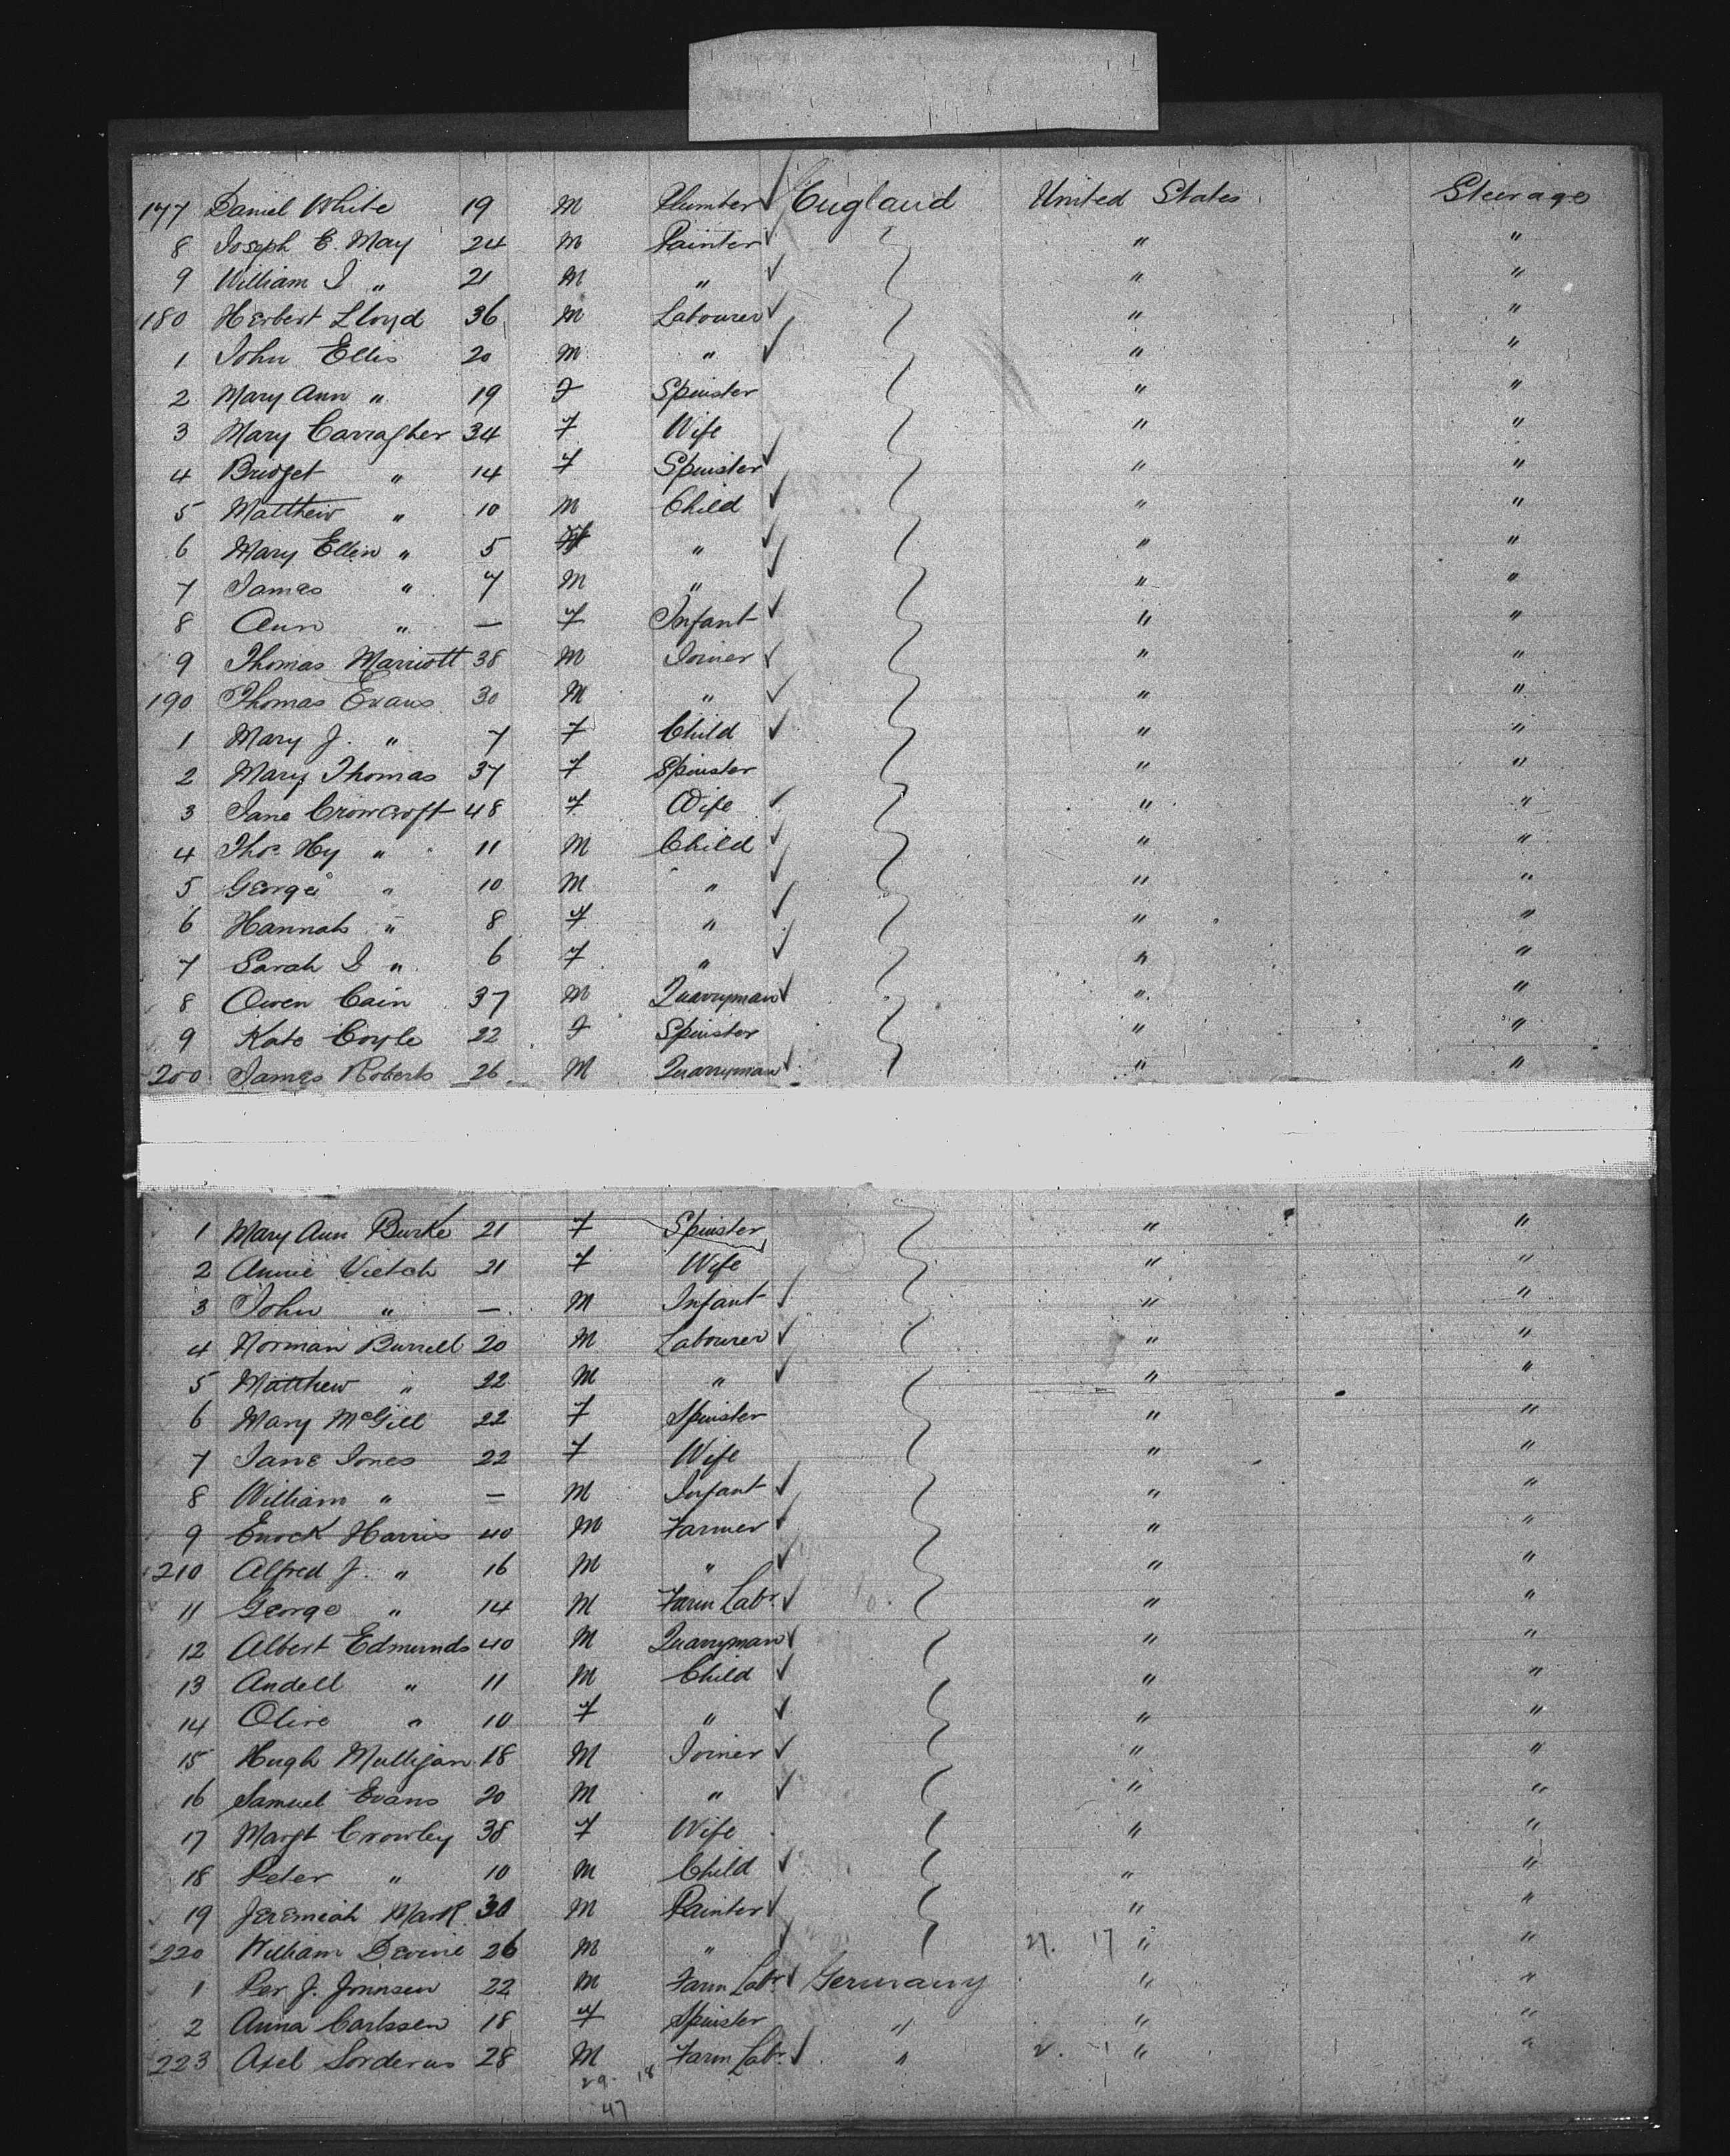 177 Daniel White 19 M Plumber England United States Steerage
8 Joseph E. May 24 M Painter " "
9 William J " 21 M " " "
180 Herbert Lloyd 36 M Labourer " "
1 John Ellis 20 M " " "
2 Mary Ann " 19 F Spinster " "
3 Mary Carragher 34 F Wife " "
4 Bridget " 14 F Spinster " "
5 Matthew " 10 M Child " "
6 Mary Ellen " 5 F " " "
7 James " 7 M " " "
8 Ann " — F Infant " "
9 Thomas Marriott 38 M Joiner " "
190 Thomas Evans 30 M " " "
1 Mary J. " 7 F Child " "
2 Mary Thomas 37 F Spinster " "
3 Jane Crowcroft 48 F Wife " "
4 Thos. Hy " 11 M Child " "
5 George " 10 M " " "
6 Hannah " 8 F " " "
7 Sarah J " 6 F " " "
8 Owen Cain 37 M Quarryman " "
9 Kate Coyle 22 F Spinster " "
200 James Roberts 26 M Quarryman " "
1 Mary Ann Burke 21 F Spinster " "
2 Annie Vietch 21 F Wife " "
3 John " — M Infant " "
4 Norman Burrell 20 M Labourer " "
5 Matthew " 22 M " " "
6 Mary McGill 22 F Spinster " "
7 Jane Jones 22 F Wife " "
8 William " — M Infant " "
9 Enock Harris 40 M Farmer " "
210 Alfred J. " 16 M " " "
11 George " 14 M Farm Labr. " "
12 Albert Edmunds 40 M Quarryman " "
13 Andell " 11 M Child " "
14 Olive " 10 F " " "
15 Hugh Mulligan 18 M Joiner " "
16 Samuel Evans 20 M " " "
17 Margt Crowley 38 F Wife " "
18 Peter " 10 M Child " "
19 Jeremiah Mark 30 M Painter " "
220 William Devine 26 M " 27. 17 " "
1 Per J. Johnsen 22 M Farm Labr. Germany " "
2 Anna Carlssen 18 F Spinster " " "
223 Axel Sorderus 28 M Farm Labr. " 2. 1 " "
29. 18
47